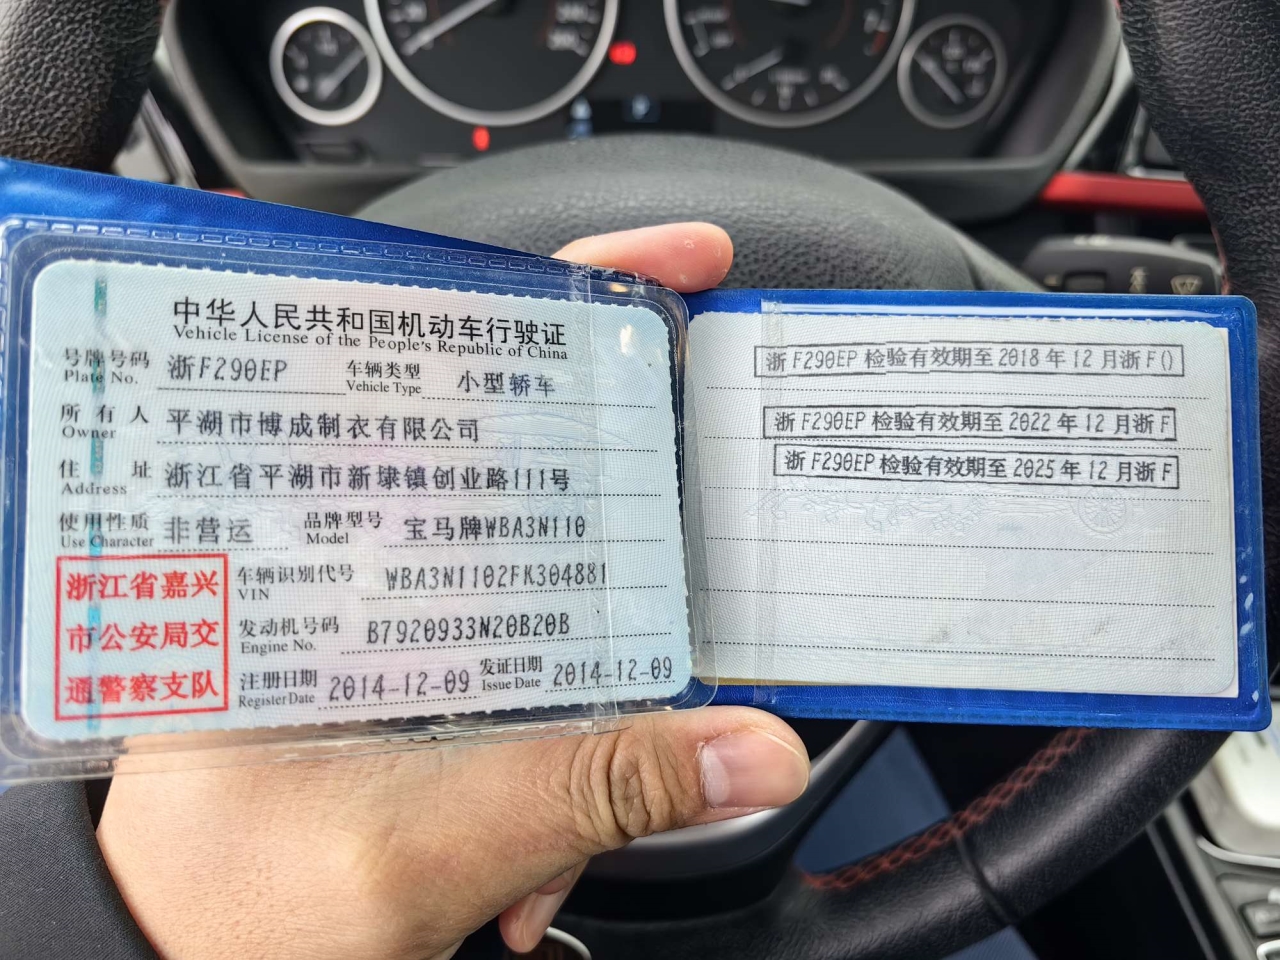 中华人民共和国机动车行驶证
Vehicle License of the People's Republic of China
号牌号码 浙F290EP 车辆类型 小型轿车
Plate No. Vehicle Type
所有人 平湖市博成制衣有限公司
Owner
住址 浙江省平湖市新埭镇创业路111号
Address
使用性质 非营运 品牌型号 宝马牌WBA3N110
Use Character Model
浙江省嘉兴
市公安局交
通警察支队
车辆识别代号 WBA3N1102FK304881
VIN
发动机号码 B7920933N20B20B
Engine No.
注册日期 2014-12-09 发证日期 2014-12-09
Register Date Issue Date
浙F290EP检验有效期至2018年12月浙F()
浙F290EP检验有效期至2022年12月浙F
浙F290EP检验有效期至2025年12月浙F